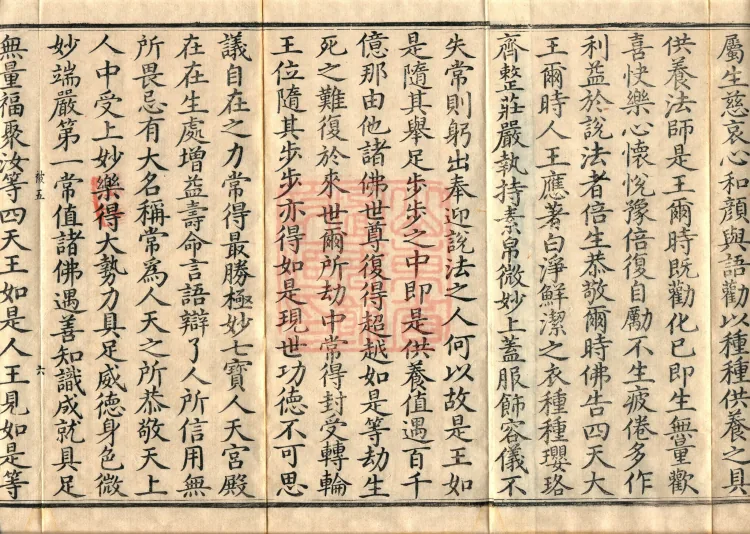 屬生慈哀心和顏與語勸以種種供養之具
供養法師是王爾時既勸化已即生無量歡
喜快樂心懷悅豫倍復自勵不生疲倦多作
利益於說法者倍生恭敬爾時佛告四天大
王爾時人王應著白淨鮮潔之衣種種瓔珞
齊整莊嚴執持素帛微妙上蓋服飾容儀不
失常則躬出奉迎說法之人何以故是王如
是隨其舉足步步之中即是供養值遇百千
億那由他諸佛世尊復得超越如是等劫生
死之難復於來世爾所劫中常得封受轉輪
王位隨其步步亦得如是現世功德不可思
議自在之力常得最勝極妙七寶人天宮殿
在在生處增益壽命言語辯了人所信用無
所畏忌有大名稱常為人天之所恭敬天上
人中受上妙樂得大勢力具足威德身色微
妙端嚴第一常值諸佛遇善知識成就具足
六
無量福聚汝等四天王如是人王見如是等